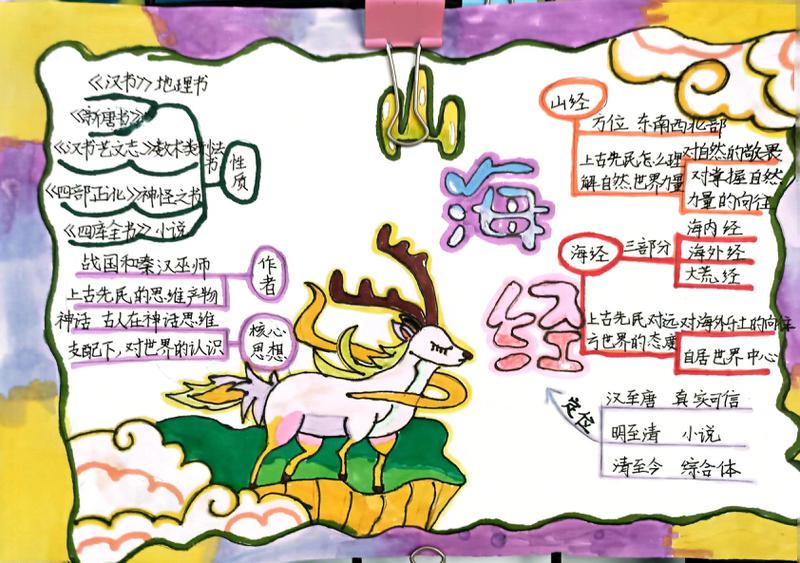 山
海
经
《汉书》地理书
《新唐书》
《汉书艺文志》数术类刑法书
《四部正讹》神怪之书
《四库全书》小说
性质
战国和秦汉巫师
上古先民的思维产物
作者
神话 古人在神话思维
支配下,对世界的认识
核心
思想
山经
方位 东南西北部
上古先民怎么理
解自然世界力量
对自然的敬畏
对掌握自然
力量的向往
海经
三部分
海内经
海外经
大荒经
上古先民对远
方世界的态度
对海外乐土的向往
自居世界中心
定位
汉至唐 真实可信
明至清 小说
清至今 综合体